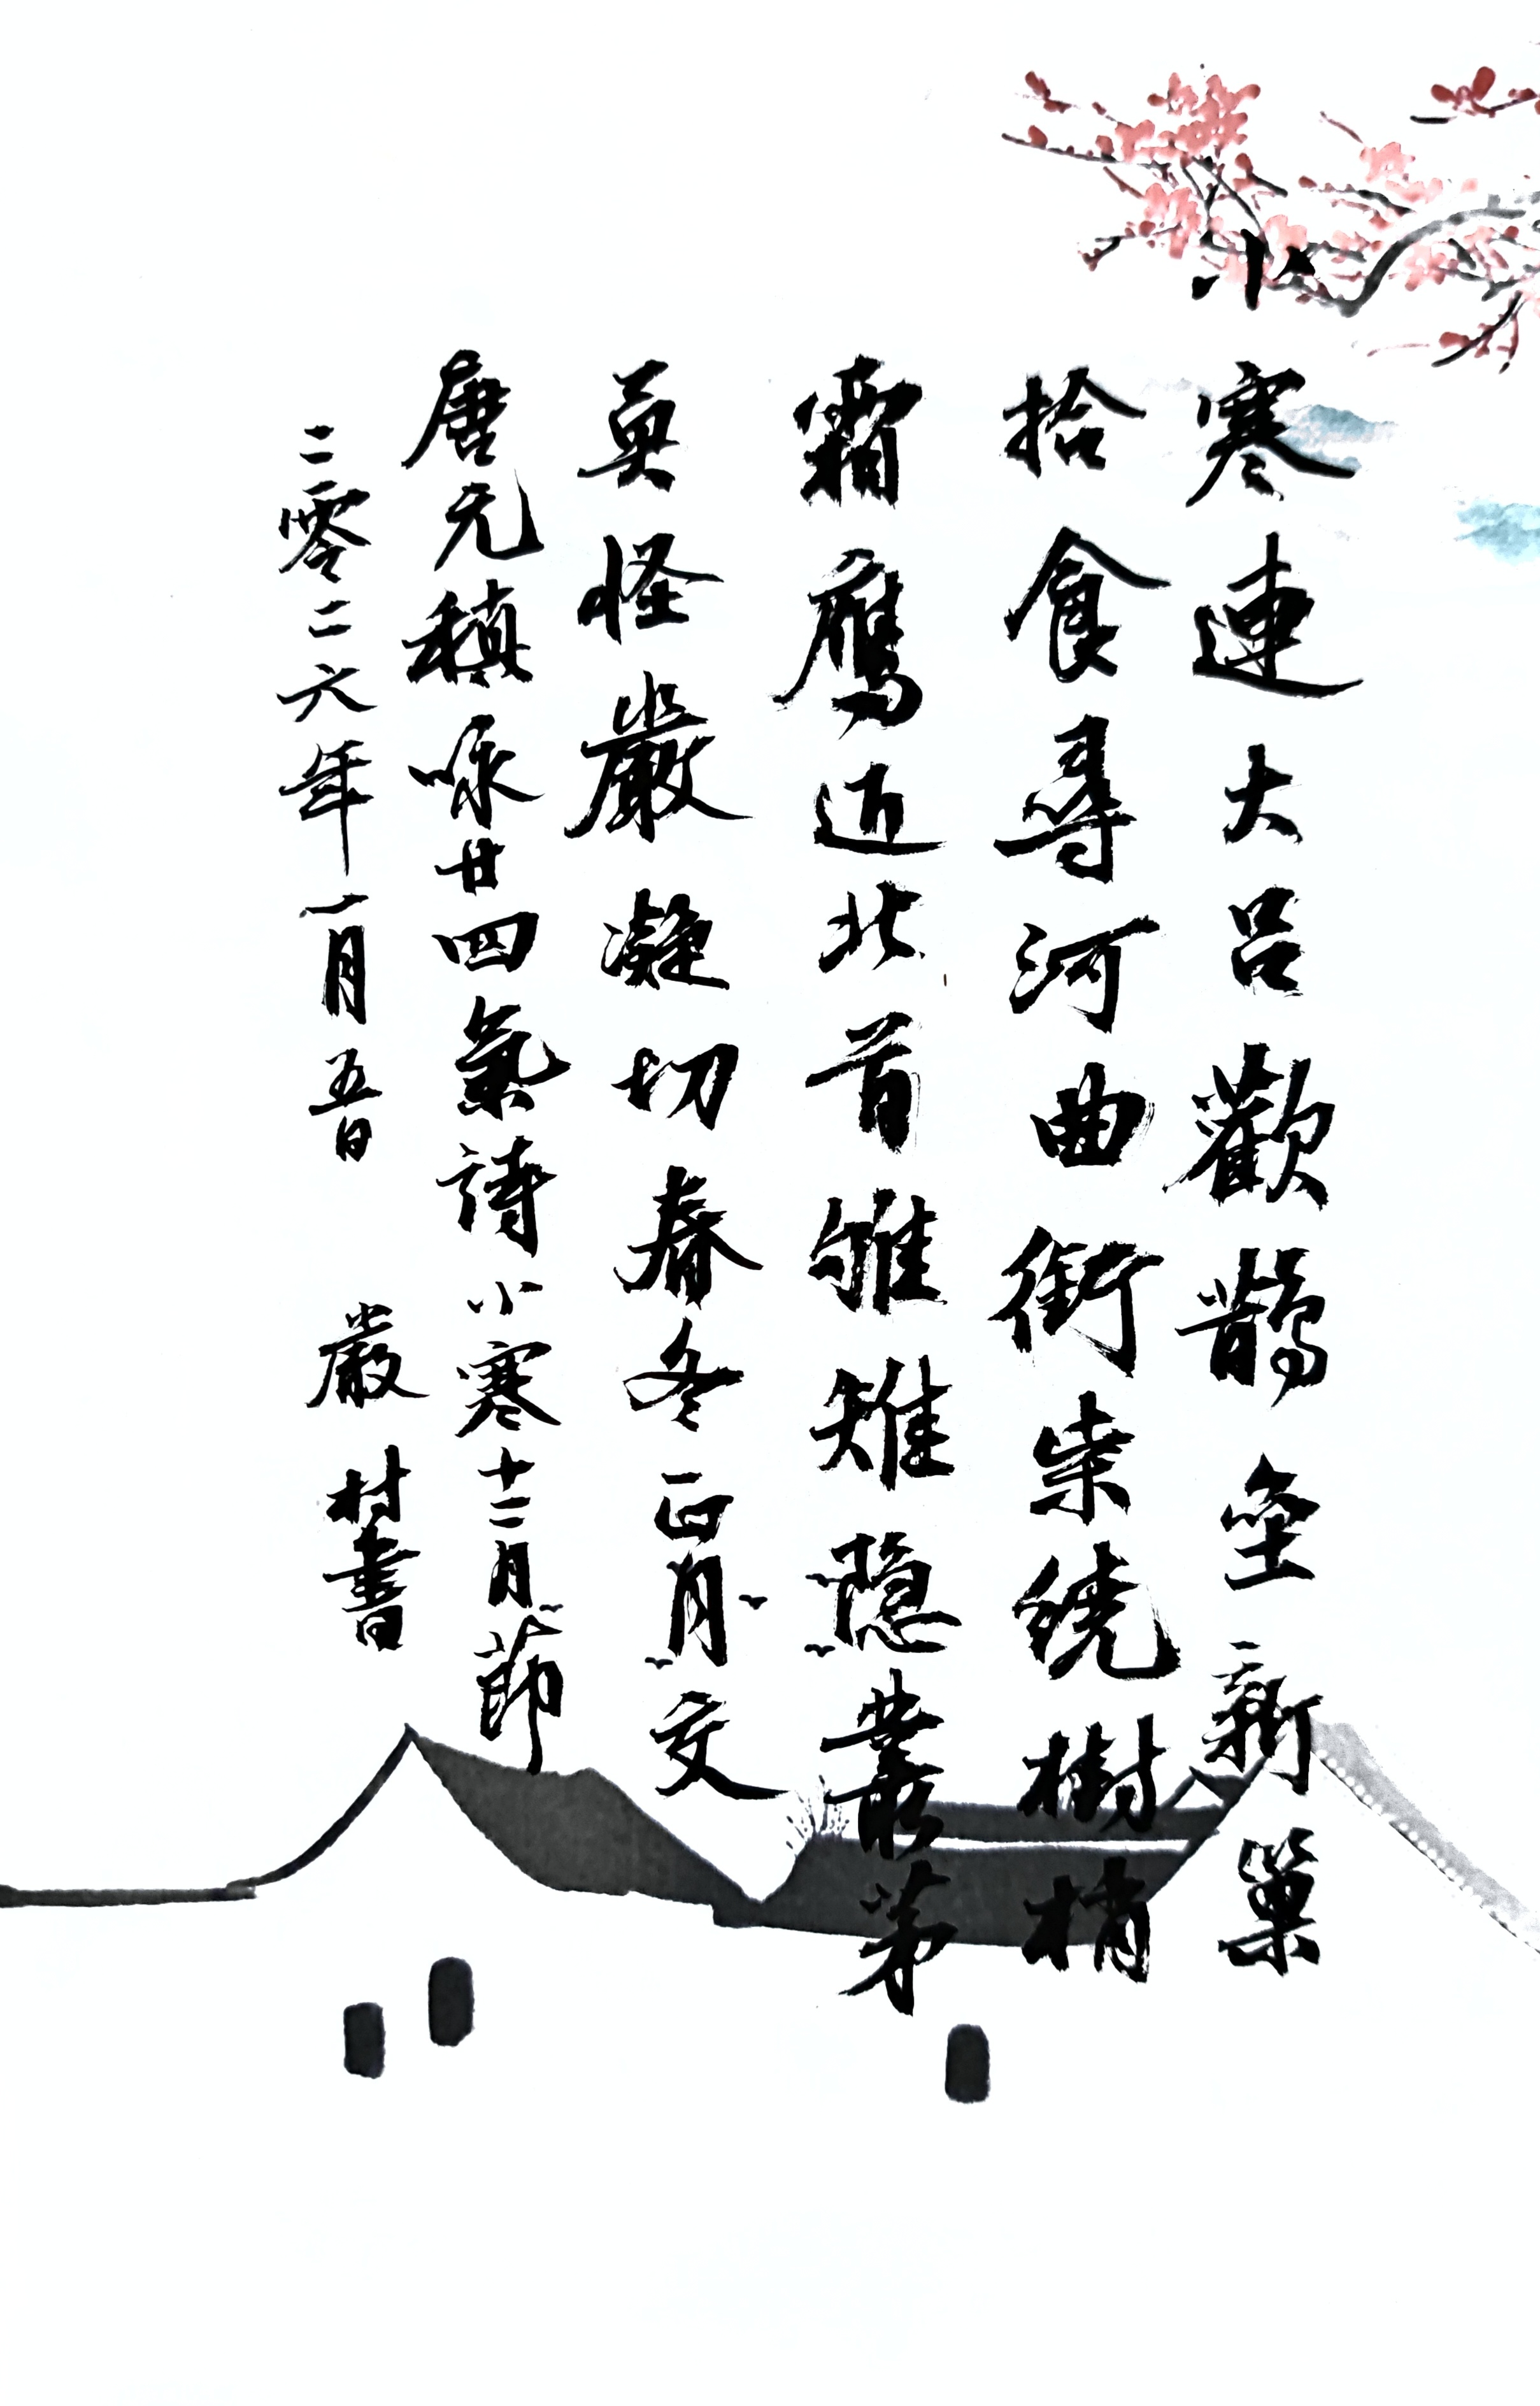 小寒連大呂歡鵲垒新巢
拾食尋河曲銜柴绕樹梢
霜鹰近北首雊雉隐叢茅
莫怪嚴凝切春冬正月交
唐元稹咏廿四氣詩小寒十二月節
二零二六年一月五日 嚴村書